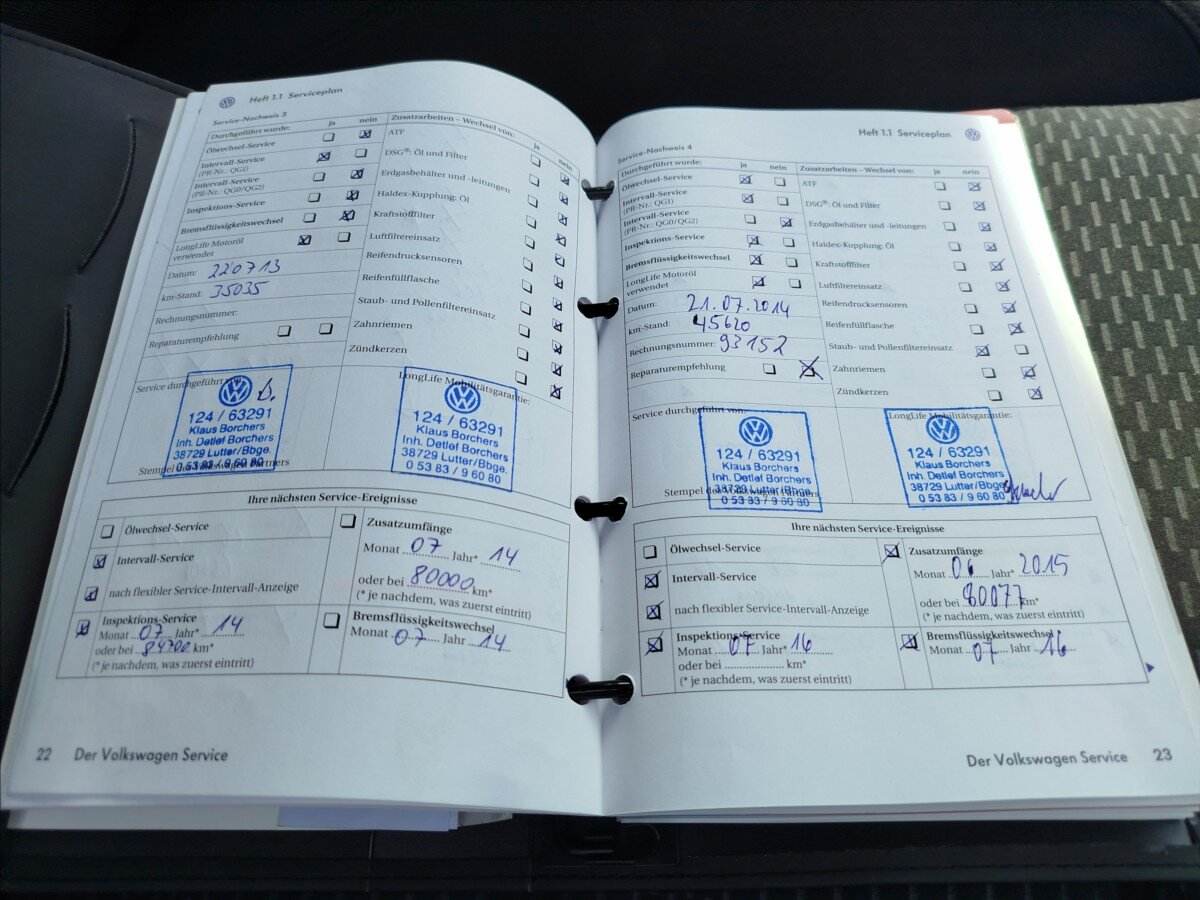 Heft 1.1 Serviceplan
Service-Nachweis 3
Durchgeführt wurde: ja nein
Ölwechsel-Service
Intervall-Service
(PR-Nr.: QG1)
Intervall-Service
(PR-Nr.: QG0/QG2)
Inspektions-Service
Bremsflüssigkeitswechsel
LongLife Motoröl
verwendet
Datum: 220713
km-Stand: 35035
Rechnungsnummer:
Reparaturempfehlung
Zusatzarbeiten – Wechsel von: ja nein
ATF
DSG®: Öl und Filter
Erdgasbehälter und -leitungen
Haldex-Kupplung: Öl
Kraftstofffilter
Luftfiltereinsatz
Reifendrucksensoren
Reifenfüllflasche
Staub- und Pollenfiltereinsatz
Zahnriemen
Zündkerzen
Service durchgeführt von:
124 / 63291
Klaus Borchers
Inh. Detlef Borchers
38729 Lutter/Bbge.
0 53 83 / 9 60 80
Stempel des Volkswagen Partners
LongLife Mobilitätsgarantie:
124 / 63291
Klaus Borchers
Inh. Detlef Borchers
38729 Lutter/Bbge.
0 53 83 / 9 60 80
Ihre nächsten Service-Ereignisse
Ölwechsel-Service
Intervall-Service
nach flexibler Service-Intervall-Anzeige
Inspektions-Service
Monat 07 Jahr* 14
oder bei 84700 km*
(* je nachdem, was zuerst eintritt)
Zusatzumfänge
Monat 07 Jahr* 14
oder bei 80000 km*
(* je nachdem, was zuerst eintritt)
Bremsflüssigkeitswechsel
Monat 07 Jahr 14
22 Der Volkswagen Service
Heft 1.1 Serviceplan
Service-Nachweis 4
Durchgeführt wurde: ja nein
Ölwechsel-Service
Intervall-Service
(PR-Nr.: QG1)
Intervall-Service
(PR-Nr.: QG0/QG2)
Inspektions-Service
Bremsflüssigkeitswechsel
LongLife Motoröl
verwendet
Datum: 21.07.2014
km-Stand: 45620
Rechnungsnummer: 93152
Reparaturempfehlung
Zusatzarbeiten – Wechsel von: ja nein
ATF
DSG®: Öl und Filter
Erdgasbehälter und -leitungen
Haldex-Kupplung: Öl
Kraftstofffilter
Luftfiltereinsatz
Reifendrucksensoren
Reifenfüllflasche
Staub- und Pollenfiltereinsatz
Zahnriemen
Zündkerzen
Service durchgeführt von:
124 / 63291
Klaus Borchers
Inh. Detlef Borchers
38729 Lutter/Bbge.
0 53 83 / 9 60 80
Stempel des Volkswagen Partners
LongLife Mobilitätsgarantie:
124 / 63291
Klaus Borchers
Inh. Detlef Borchers
38729 Lutter/Bbge.
0 53 83 / 9 60 80
Ihre nächsten Service-Ereignisse
Ölwechsel-Service
Intervall-Service
nach flexibler Service-Intervall-Anzeige
Inspektions-Service
Monat 07 Jahr* 16
oder bei km*
(* je nachdem, was zuerst eintritt)
Zusatzumfänge
Monat 06 Jahr* 2015
oder bei 80077 km*
(* je nachdem, was zuerst eintritt)
Bremsflüssigkeitswechsel
Monat 07 Jahr 16
Der Volkswagen Service 23